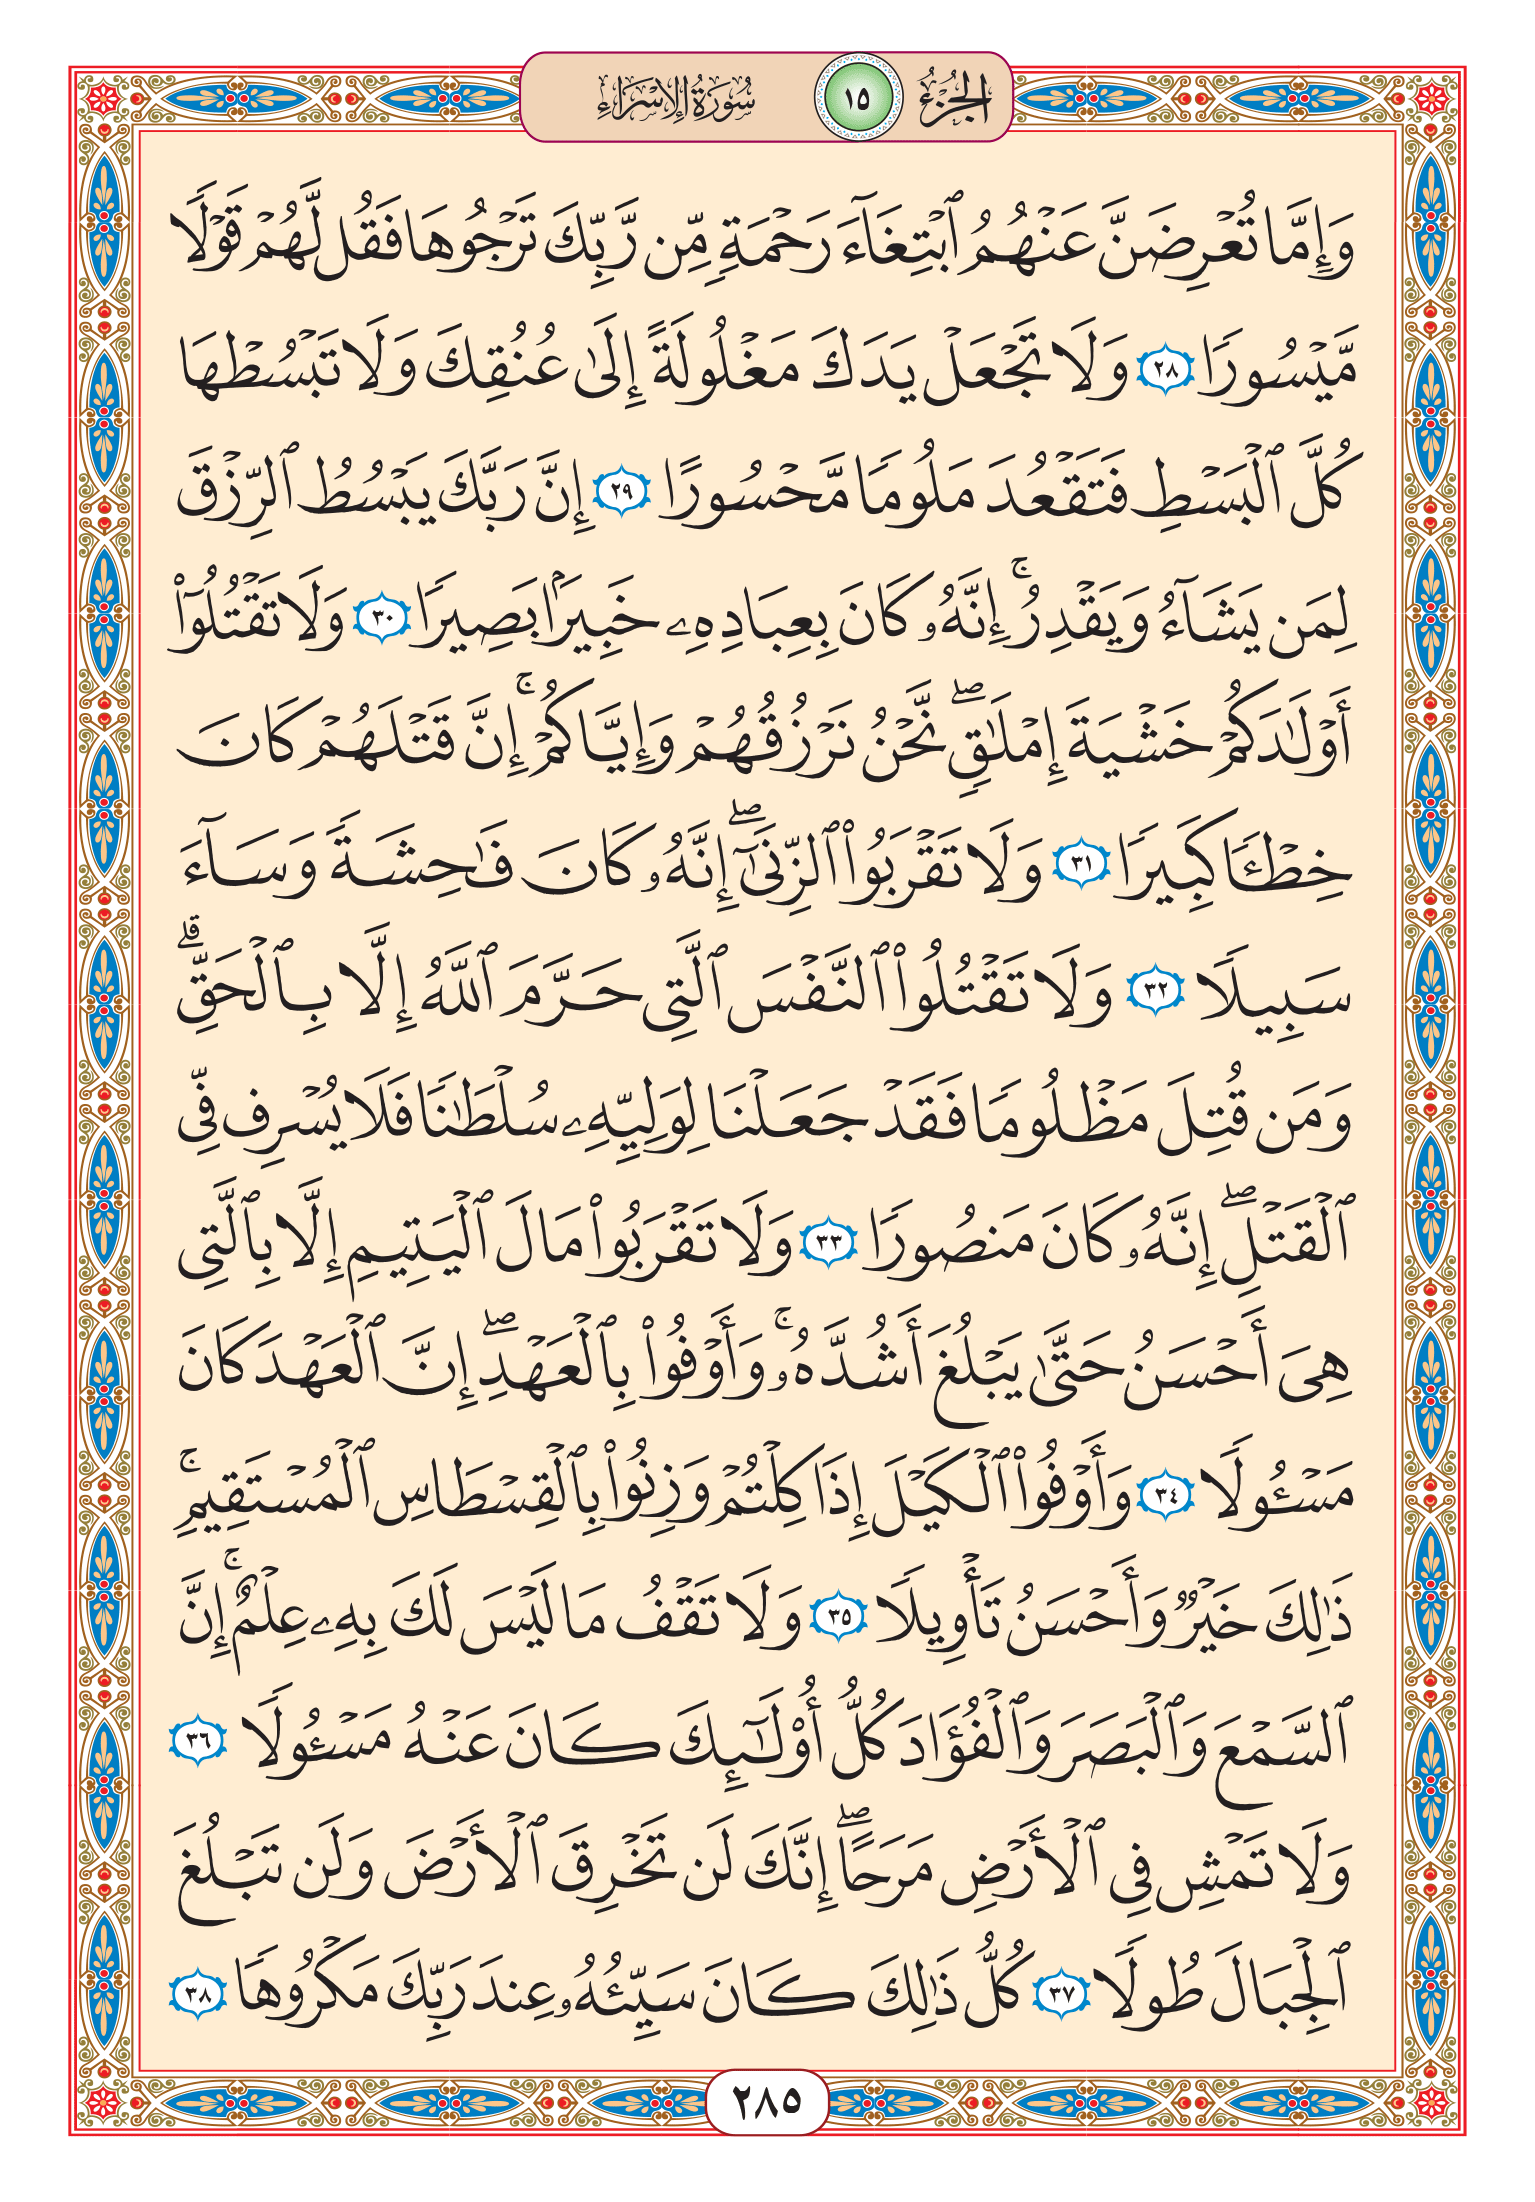 الجزء ١٥ سورة الإسراء
وَإِمَّا تُعْرِضَنَّ عَنْهُمُ ٱبْتِغَآءَ رَحْمَةٍ مِّن رَّبِّكَ تَرْجُوهَا فَقُل لَّهُمْ قَوْلًا
مَّيْسُورًا ٢٨ وَلَا تَجْعَلْ يَدَكَ مَغْلُولَةً إِلَىٰ عُنُقِكَ وَلَا تَبْسُطْهَا
كُلَّ ٱلْبَسْطِ فَتَقْعُدَ مَلُومًا مَّحْسُورًا ٢٩ إِنَّ رَبَّكَ يَبْسُطُ ٱلرِّزْقَ
لِمَن يَشَآءُ وَيَقْدِرُ ۚ إِنَّهُۥ كَانَ بِعِبَادِهِۦ خَبِيرًۢا بَصِيرًا ٣٠ وَلَا تَقْتُلُوٓا۟
أَوْلَـٰدَكُمْ خَشْيَةَ إِمْلَـٰقٍ ۖ نَّحْنُ نَرْزُقُهُمْ وَإِيَّاكُمْ ۚ إِنَّ قَتْلَهُمْ كَانَ
خِطْـًٔا كَبِيرًا ٣١ وَلَا تَقْرَبُوا۟ ٱلزِّنَىٰٓ ۖ إِنَّهُۥ كَانَ فَـٰحِشَةً وَسَآءَ
سَبِيلًا ٣٢ وَلَا تَقْتُلُوا۟ ٱلنَّفْسَ ٱلَّتِى حَرَّمَ ٱللَّهُ إِلَّا بِٱلْحَقِّ ۗ
وَمَن قُتِلَ مَظْلُومًا فَقَدْ جَعَلْنَا لِوَلِيِّهِۦ سُلْطَـٰنًا فَلَا يُسْرِف فِّى
ٱلْقَتْلِ ۖ إِنَّهُۥ كَانَ مَنصُورًا ٣٣ وَلَا تَقْرَبُوا۟ مَالَ ٱلْيَتِيمِ إِلَّا بِٱلَّتِى
هِىَ أَحْسَنُ حَتَّىٰ يَبْلُغَ أَشُدَّهُۥ ۚ وَأَوْفُوا۟ بِٱلْعَهْدِ ۖ إِنَّ ٱلْعَهْدَ كَانَ
مَسْـُٔولًا ٣٤ وَأَوْفُوا۟ ٱلْكَيْلَ إِذَا كِلْتُمْ وَزِنُوا۟ بِٱلْقِسْطَاسِ ٱلْمُسْتَقِيمِ ۚ
ذَٰلِكَ خَيْرٌ وَأَحْسَنُ تَأْوِيلًا ٣٥ وَلَا تَقْفُ مَا لَيْسَ لَكَ بِهِۦ عِلْمٌ ۚ إِنَّ
ٱلسَّمْعَ وَٱلْبَصَرَ وَٱلْفُؤَادَ كُلُّ أُو۟لَـٰٓئِكَ كَانَ عَنْهُ مَسْـُٔولًا ٣٦
وَلَا تَمْشِ فِى ٱلْأَرْضِ مَرَحًا ۖ إِنَّكَ لَن تَخْرِقَ ٱلْأَرْضَ وَلَن تَبْلُغَ
ٱلْجِبَالَ طُولًا ٣٧ كُلُّ ذَٰلِكَ كَانَ سَيِّئُهُۥ عِندَ رَبِّكَ مَكْرُوهًا ٣٨
٢٨٥